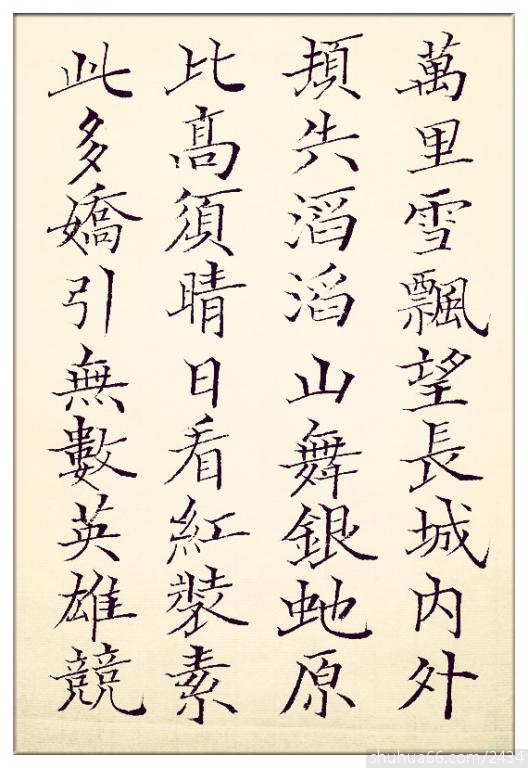 萬里雪飄望長城内外
頓失滔滔山舞銀虵原
比髙須晴日看紅裝素
此多嬌引無數英雄競
shuhua66.com/2434